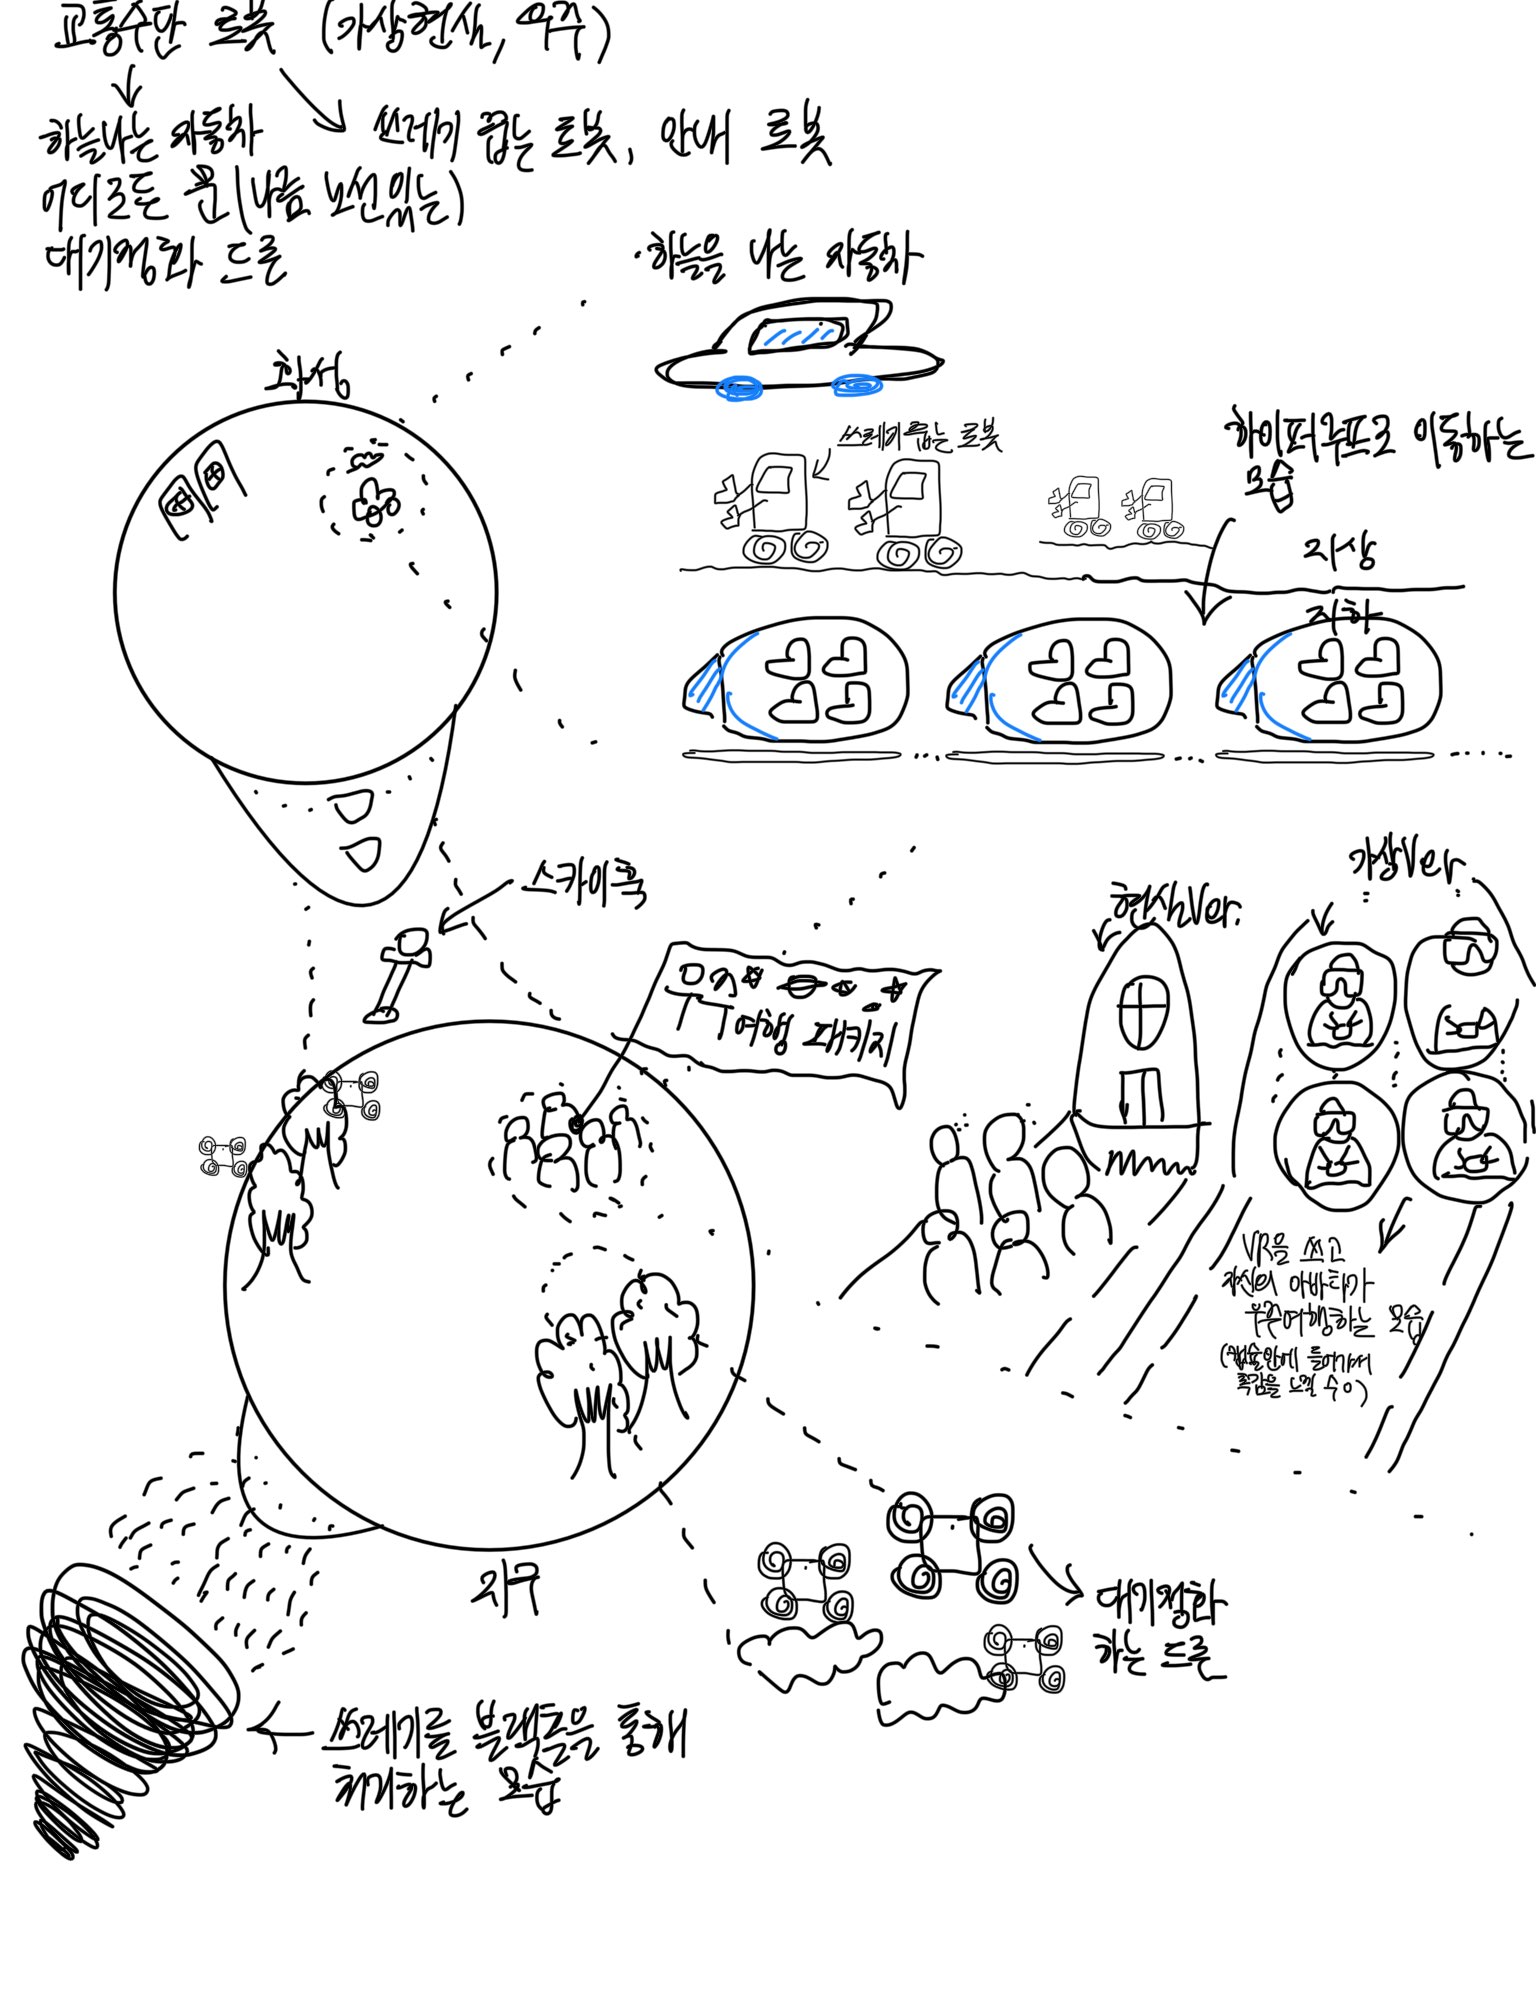 교통수단 로봇 (가상현실, 우주)
하늘나는 자동차
쓰레기 줍는 로봇, 안내 로봇
어디로든 문(나름 노선있는)
대기정화 드론
·하늘을 나는 자동차
화성
쓰레기줍는 로봇
하이퍼루프로 이동하는
모습
지상
지하
스카이훅
우주
여행 패키지
현실Ver.
가상Ver.
VR을 쓰고
자신의 아바타가
우주여행하는 모습
(캡슐안에 들어가서
촉감을 느낄 수 o)
지구
대기정화
하는 드론
쓰레기를 블랙홀을 통해
처리하는 모습